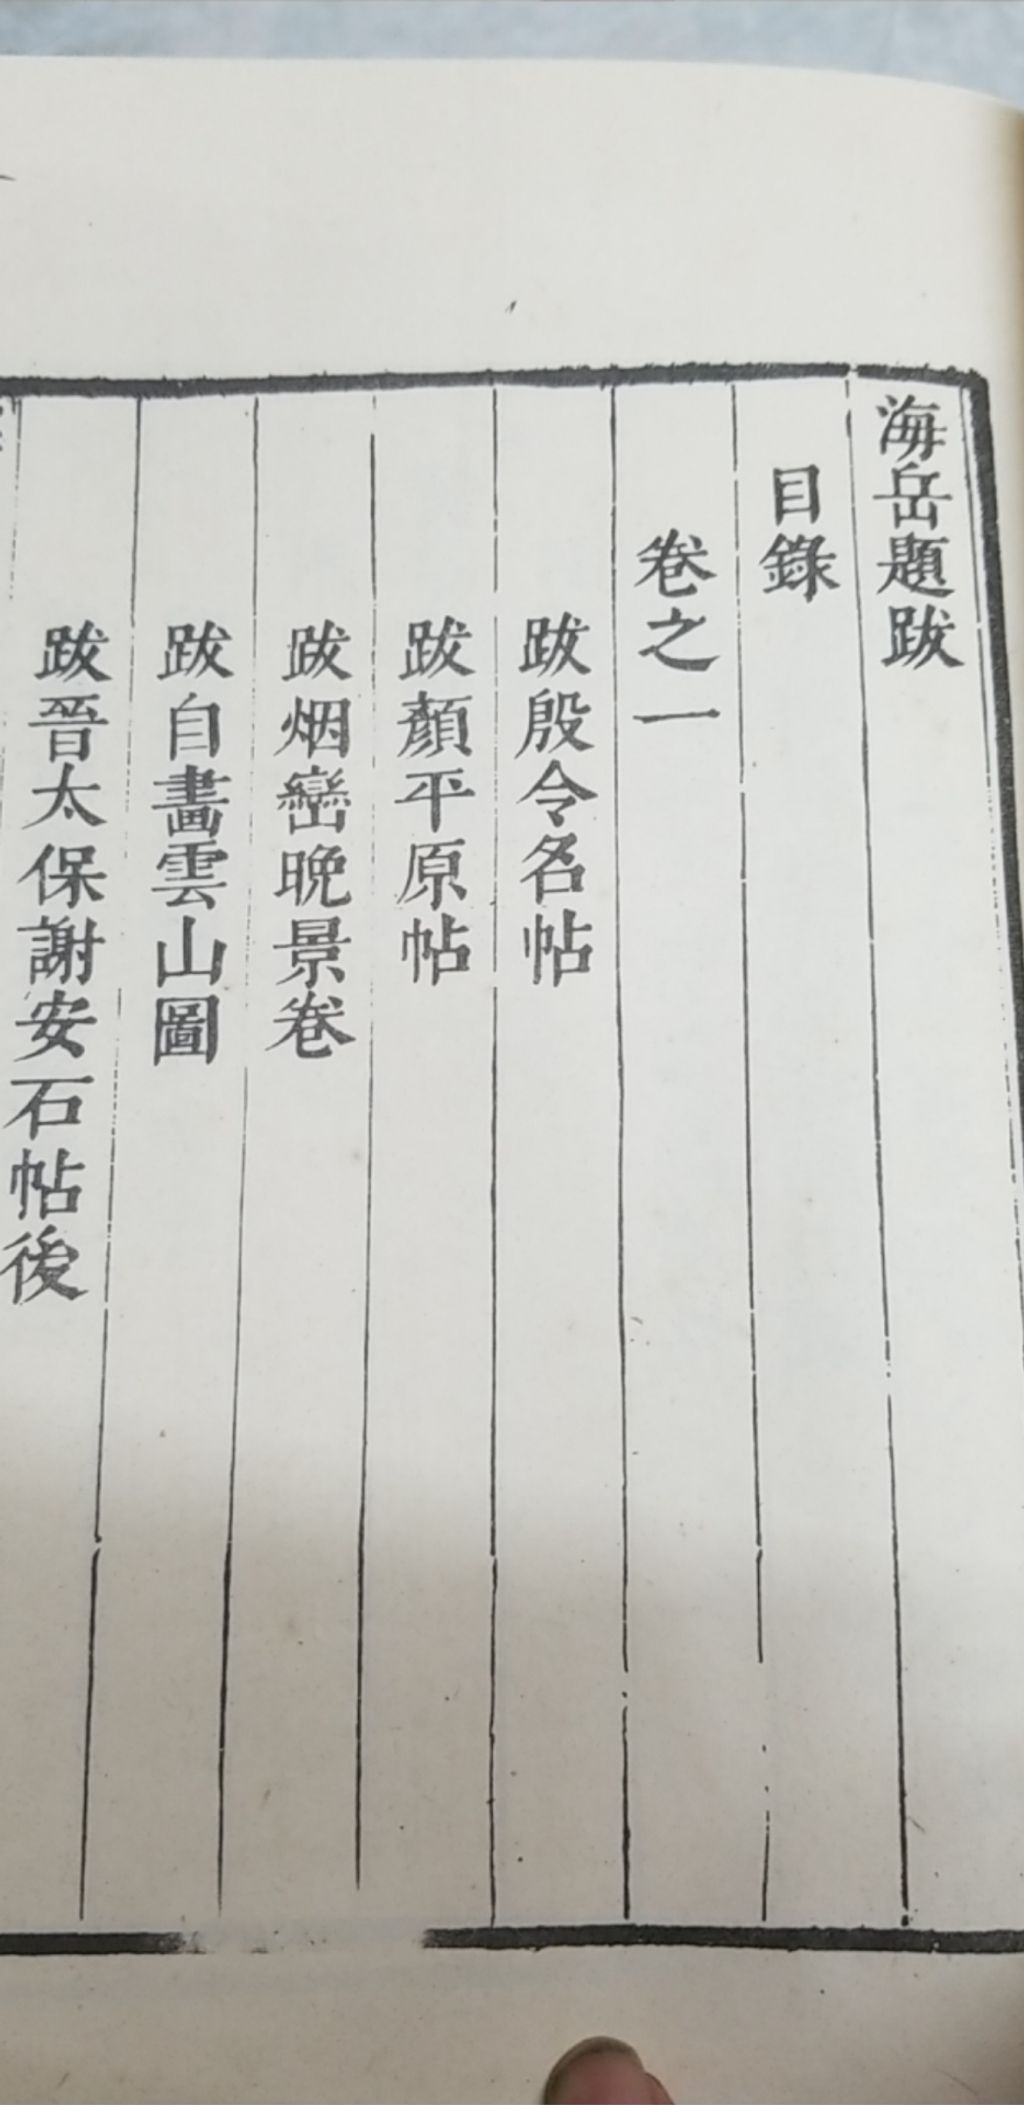 海岳題跋
目錄
卷之一
跋殷令名帖
跋顏平原帖
跋烟巒晚景卷
跋自畫雲山圖
跋晉太保謝安石帖後